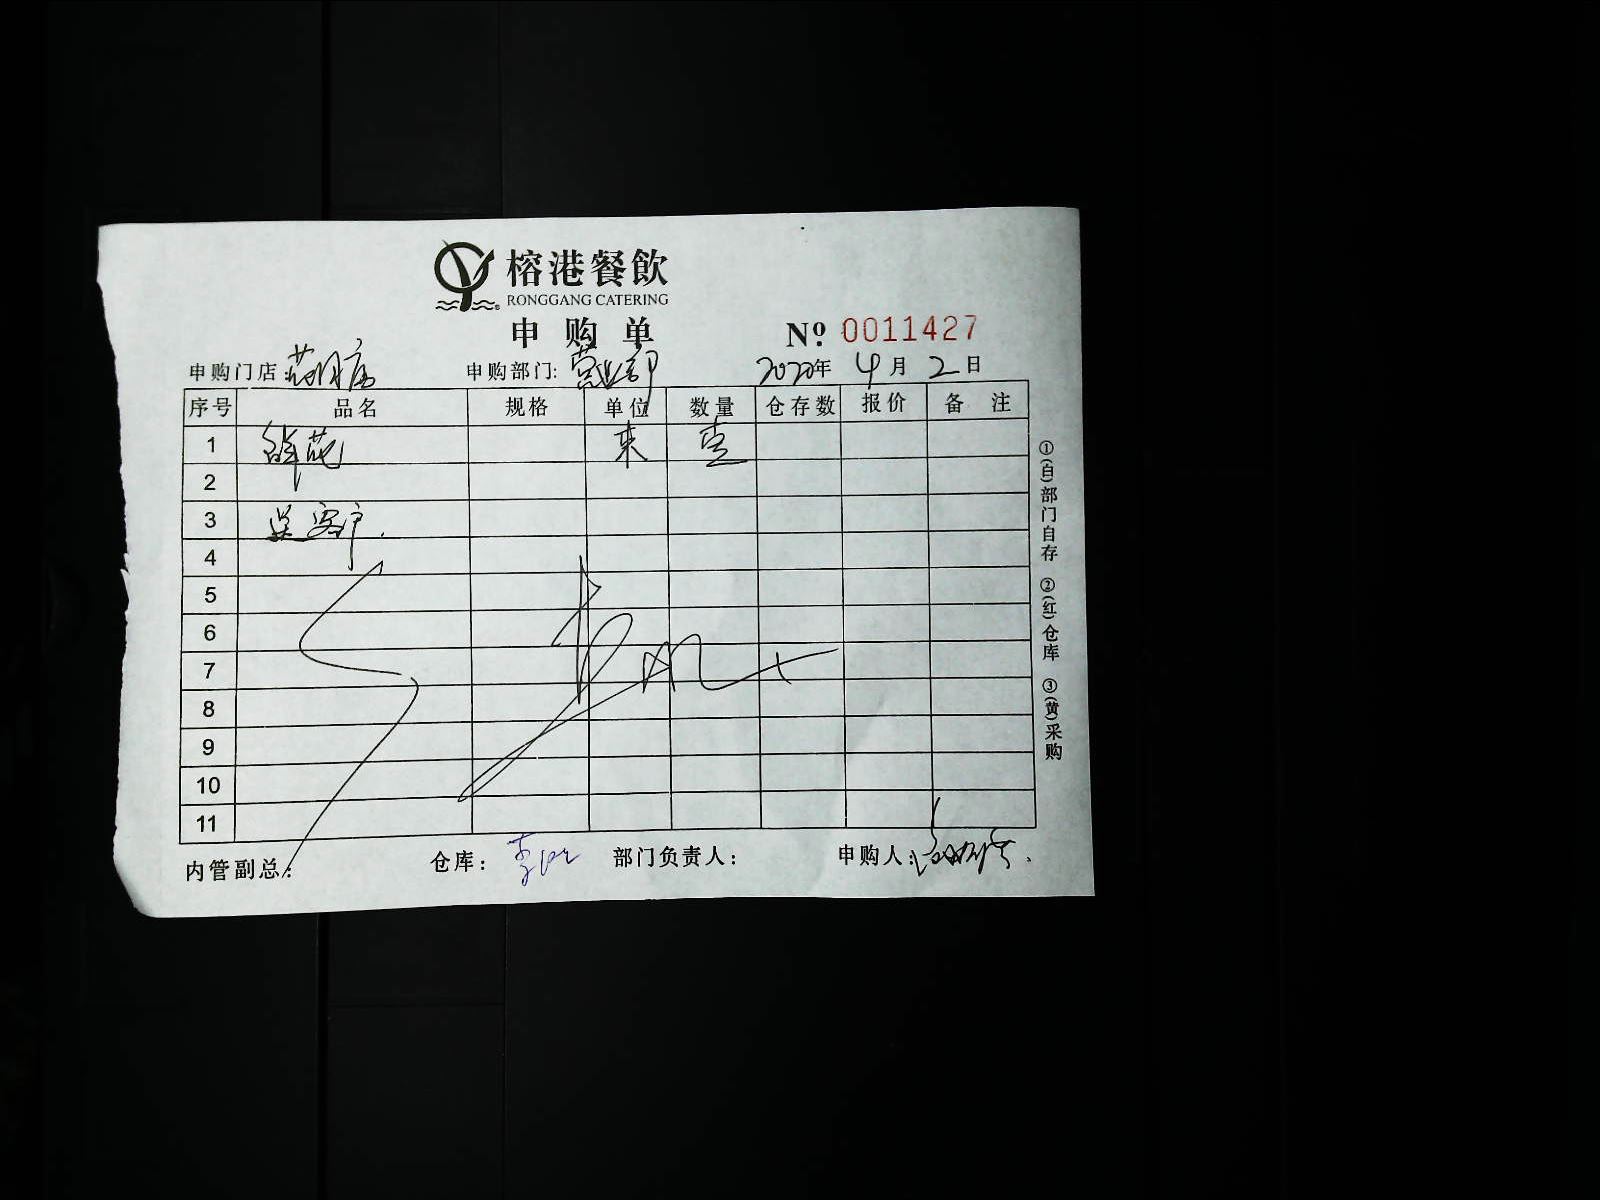 榕港餐飲
RONGGANG CATERING
申购单
№ 0011427
申购门店: 申购部门: 营业部 2020年 4月 2日
序号 品名 规格 单位 数量 仓存数 报价 备注
1 鲜花 束 壹
2
3 送客户.
4
5
6
7
8
9
10
11
①(白)部门自存 ②(红)仓库 ③(黄)采购
内管副总: 仓库: 部门负责人: 申购人: